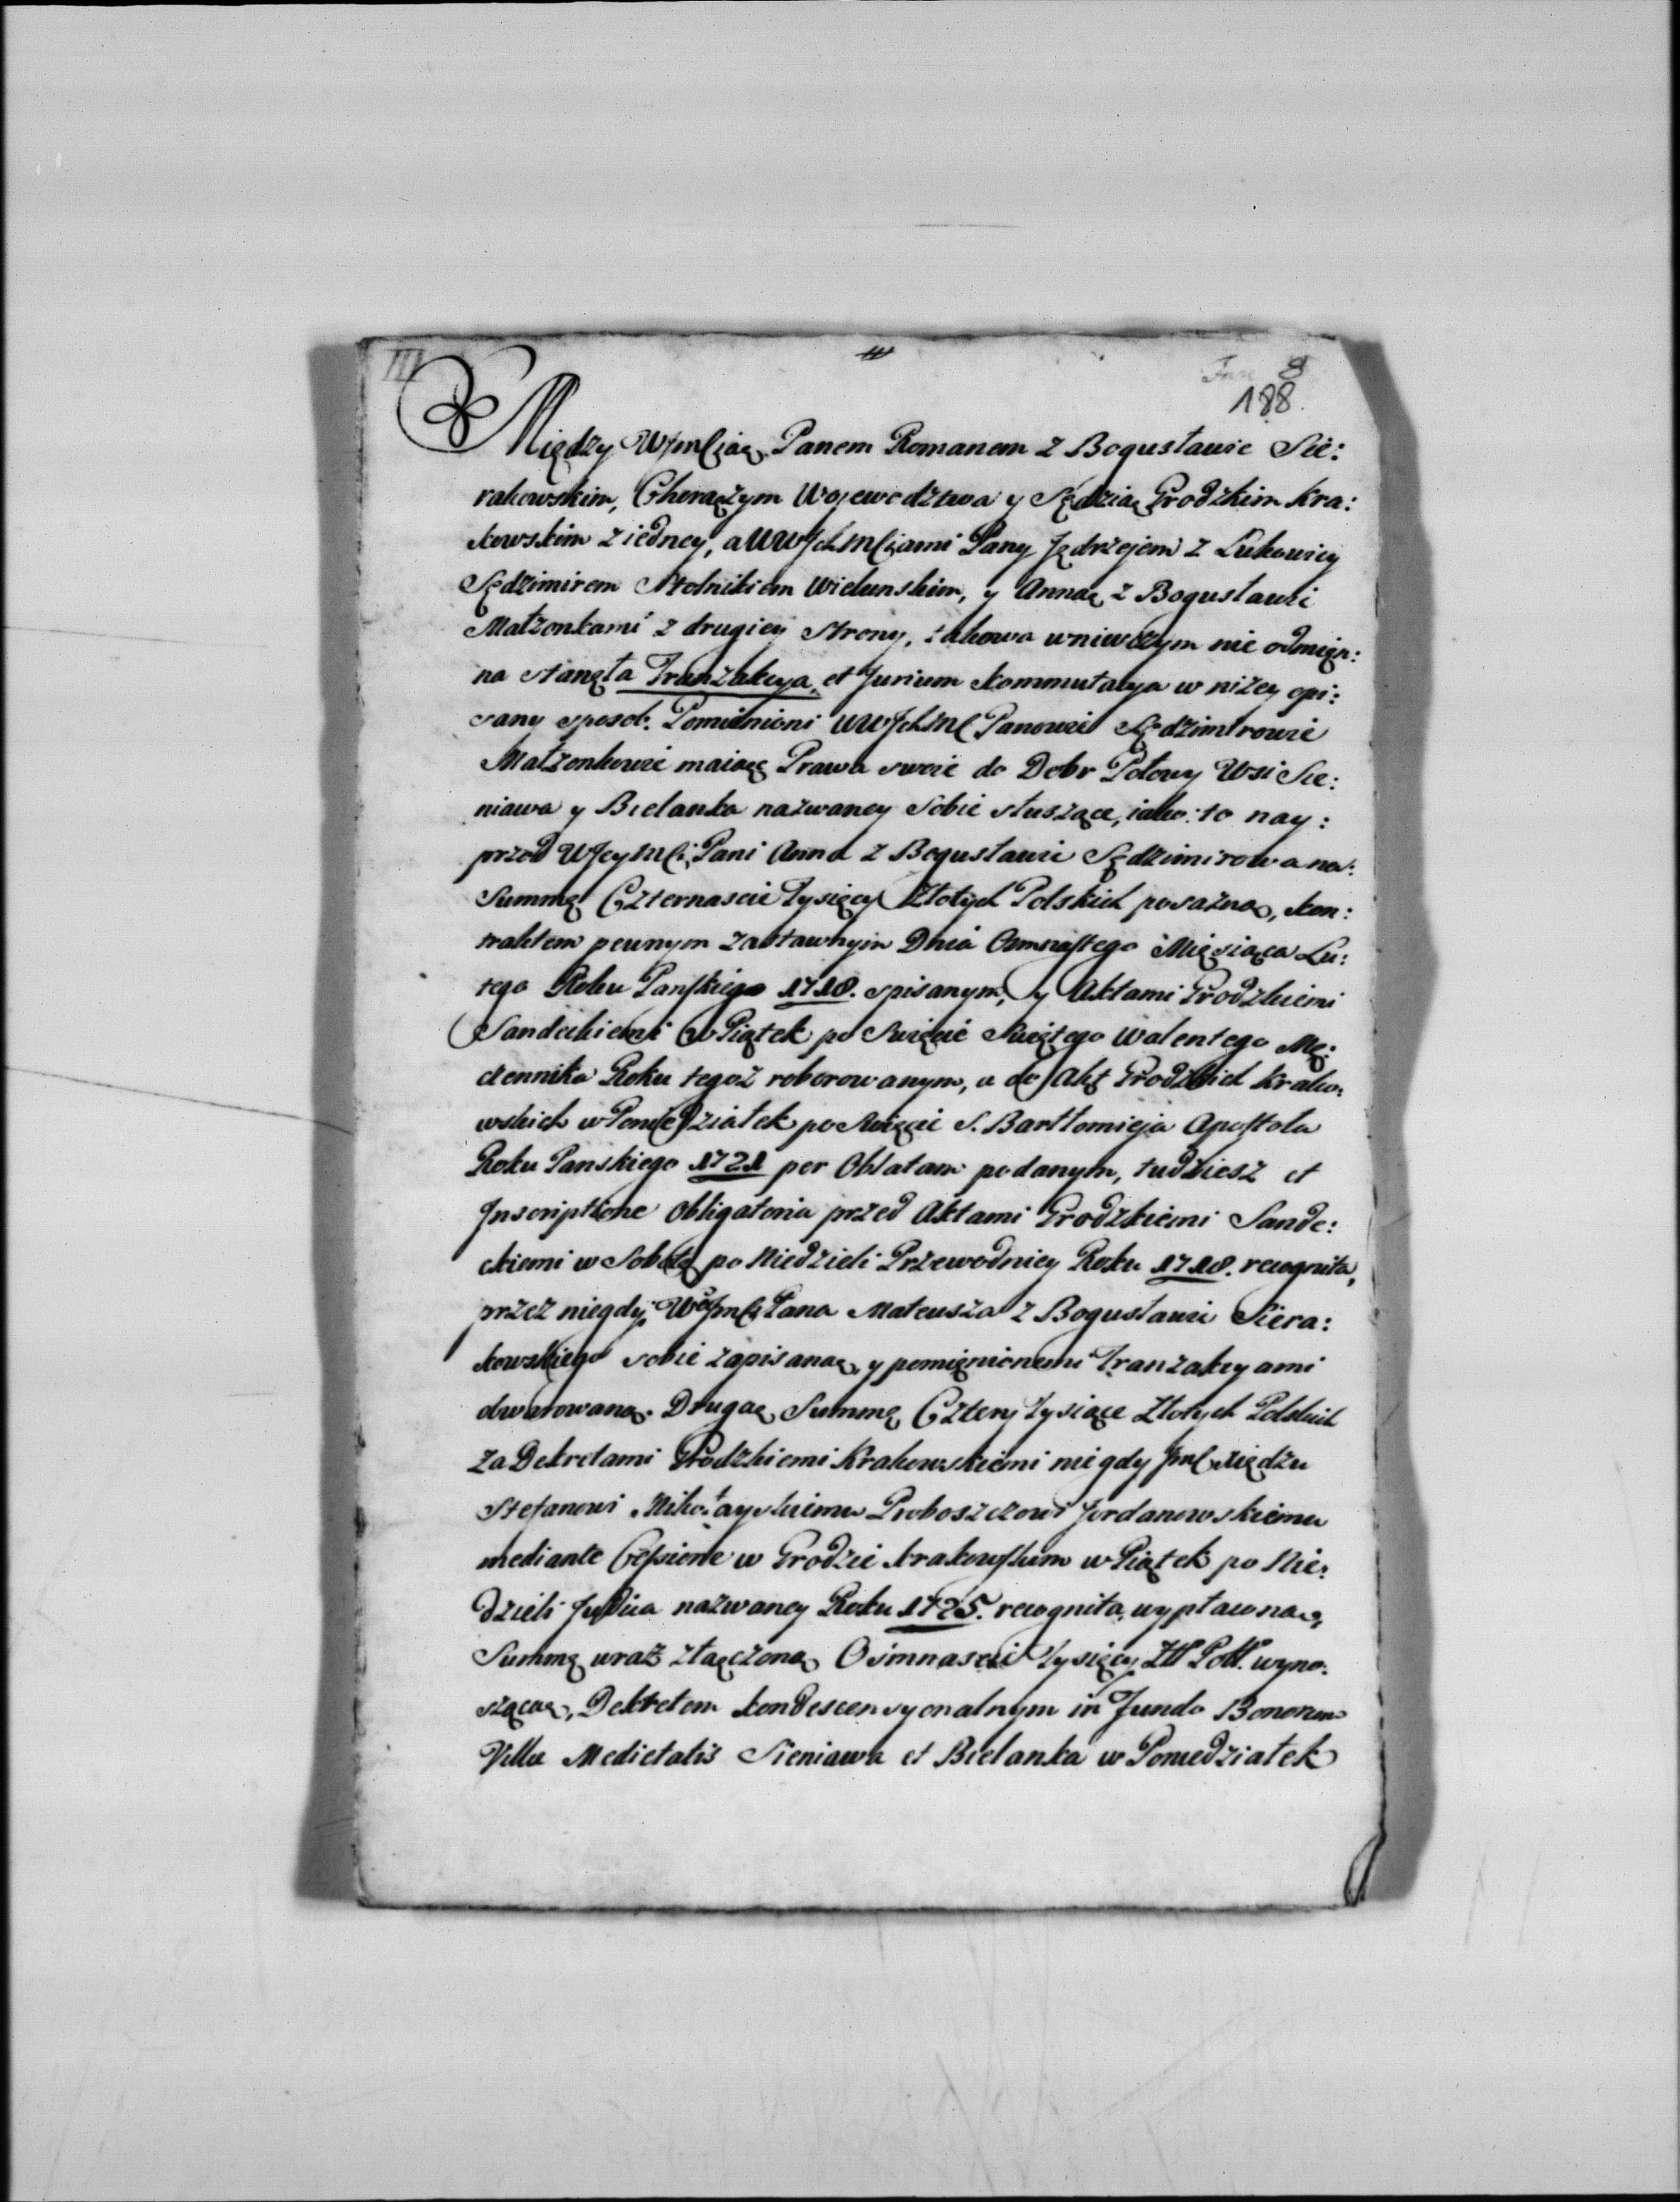 III
8
188.
Między WJmCią Panem Romanem z Bogusławic Sie:
rakowskim, Chorążym Woiewodztwa y Sędzią Grodzkim Kra:
kowskim z iedney, a UWJchMCiami Pany Jędrzejem z Lukowicy
Sędzimirem Stolnikiem Wielunskim, y Anną z Bogusławic
Małżonkami z drugiey strony, takowa wniwczym nie odmięn:
na stanęła Tranzakcya, et Jurium kommutacya w niżey opi:
sany sposob. Pomienioni UWJchMC Panowie Sędzimirowie
Małżonkowie maiąc Prawa swoie do Dobr Połowy Wsi Sie:
niawa y Bielanka nazwaney Sobie słuszące, iako: to nay:
przod WJeyMCi Pani Anna z Bogusławic Sędzimirowa na:
Summę Czternascie Tysięcy Złotych Polskich posażną, kon:
traktem pewnym zastawnym Dnia Osmnastego Miesiąca Lu:
tego Roku Panskiego 1718. spisanym, y Aktami Grodzkiemi
Sandeckiemi w Piątek po Swięcie Swiętego Walentego Mę:
czennika Roku tegoż roborowanym, a do Akt Grodzkich Krako:
wskich w Poniedziałek po Swięcie S. Bartłomieja Apostoła
Roku Panskiego 1721 per Oblatam podanym, tudziesz et
Inscriptione Obligatoria przed Aktami Grodzkiemi Sande:
ckiemi w Sobotę po Niedzieli Przewodniey Roku 1718. recognita,
przez niegdy WJmCi Pana Mateusza z Bogusławic Siera:
kowskiego sobie zapisaną, y pomięnionemi Tranzakcyami
obwarowaną. Drugą Summę Cztery Tysiące Złotych Polskich
za Dekretami Grodzkiemi Krakowskiemi niegdy JmC Xiędzu
Stefanowi Mikołayskiemu Proboszczowi Jordanowskiemu
mediante Cessione w Grodzie Krakowskim w Piątek po Nie:
dzieli Judica nazwaney Roku 1725. recognita, wypłaconą,
Summę wraz złączoną Osmnascie Tysięcy Złł Poll. wyno:
szącą, Dekretem kondescensyonalnym in Fundo Bonorum
Villæ Medietatis Sieniawa et Bielanka w Poniedziałek